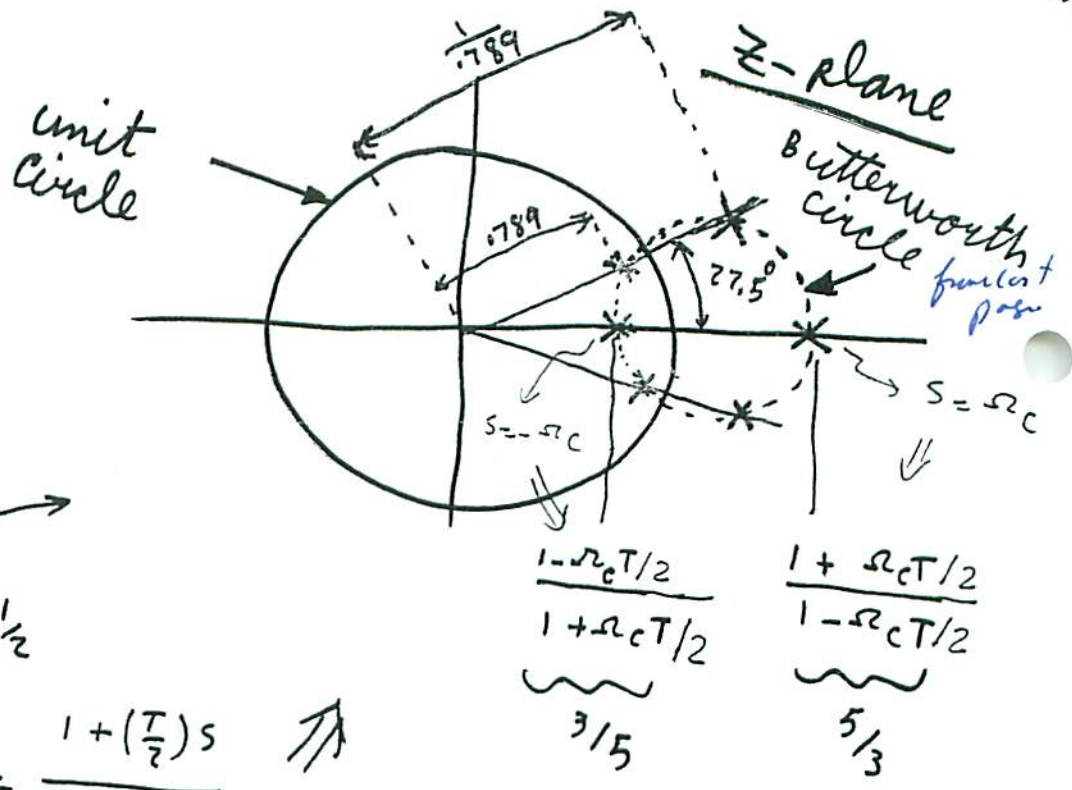 1/.789
Z-plane
unit
circle
Butterworth
circle
.789
27.5°
from last
page
S=-Ωc
S=Ωc
1-ΩcT/2
1+ΩcT/2
1+ΩcT/2
1-ΩcT/2
3/5
5/3
1/2
1+(T/2)S